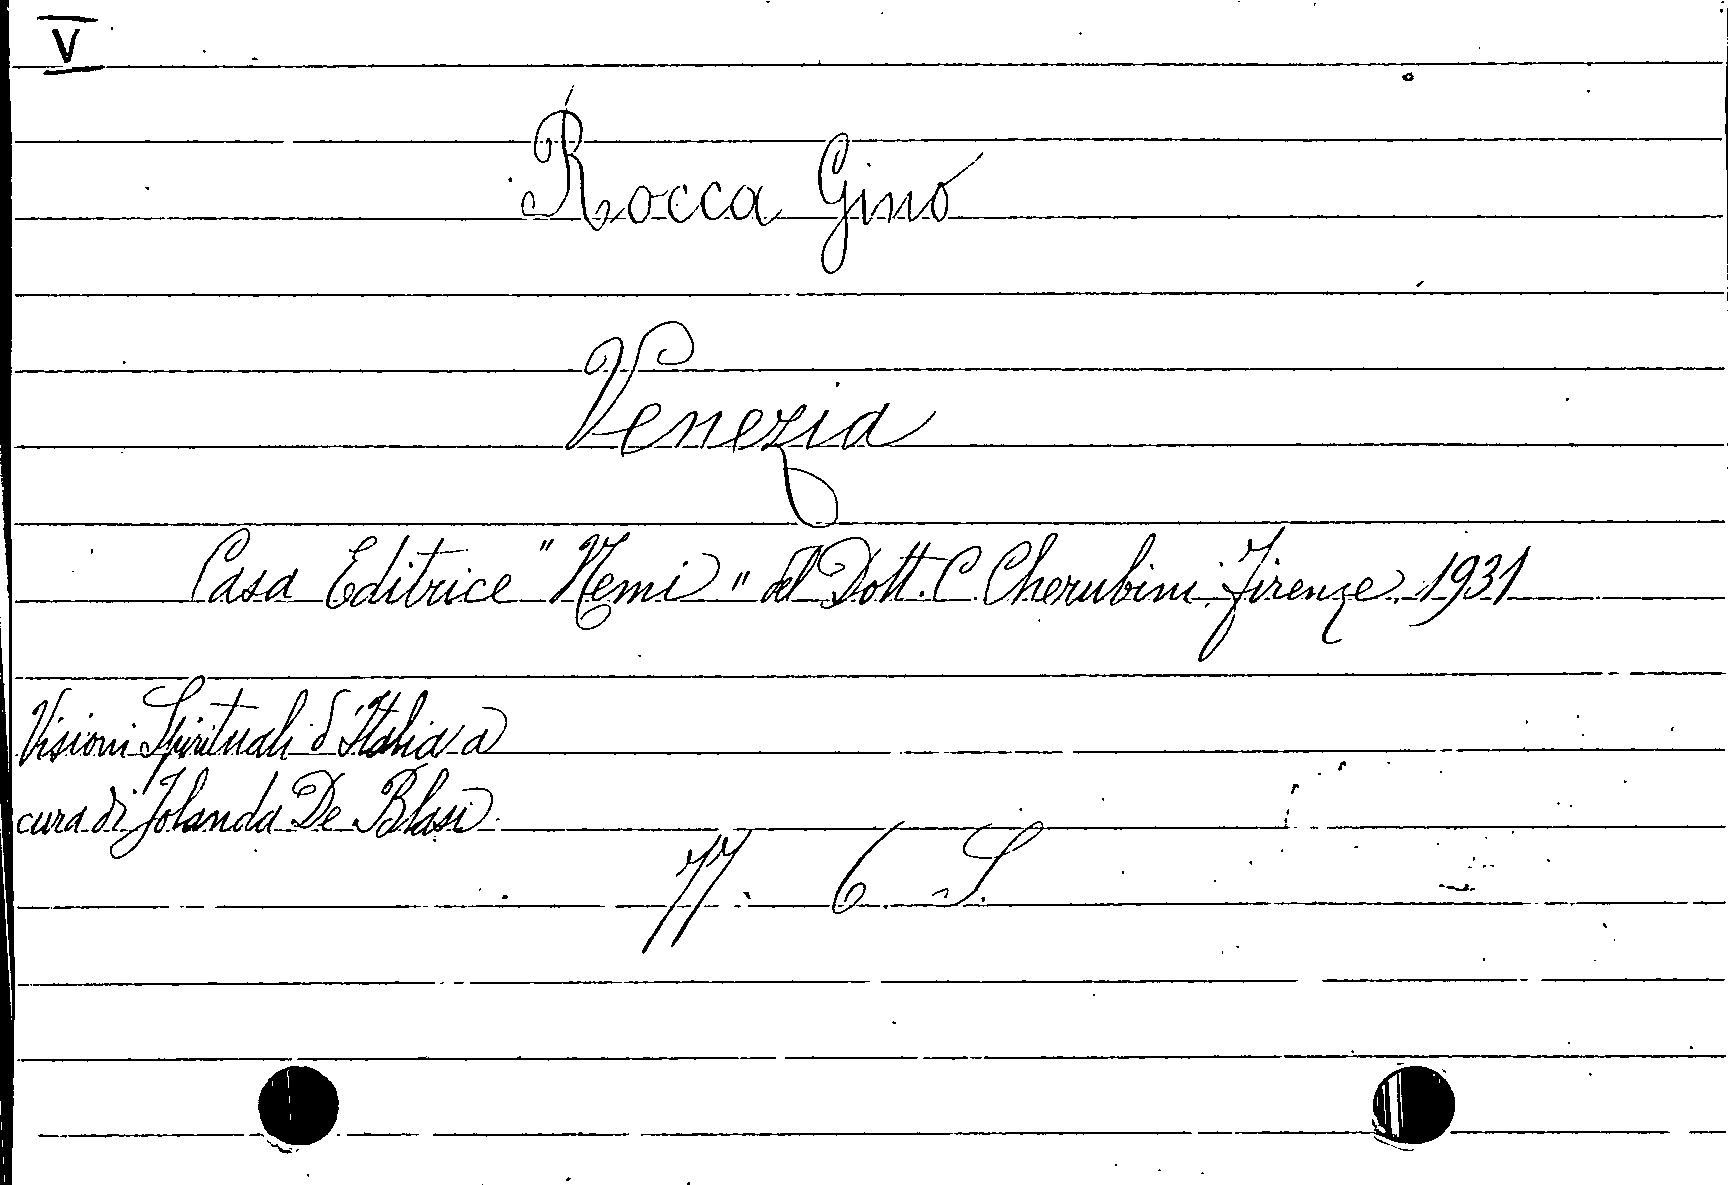 V
Rocca Gino
Venezia
Casa Editrice "Nemi" del Dott. C. Cherubini. Firenze. 1931
Visioni Spirituali d'Italia a
cura di Jolanda De Blasi.
77. 6. S.